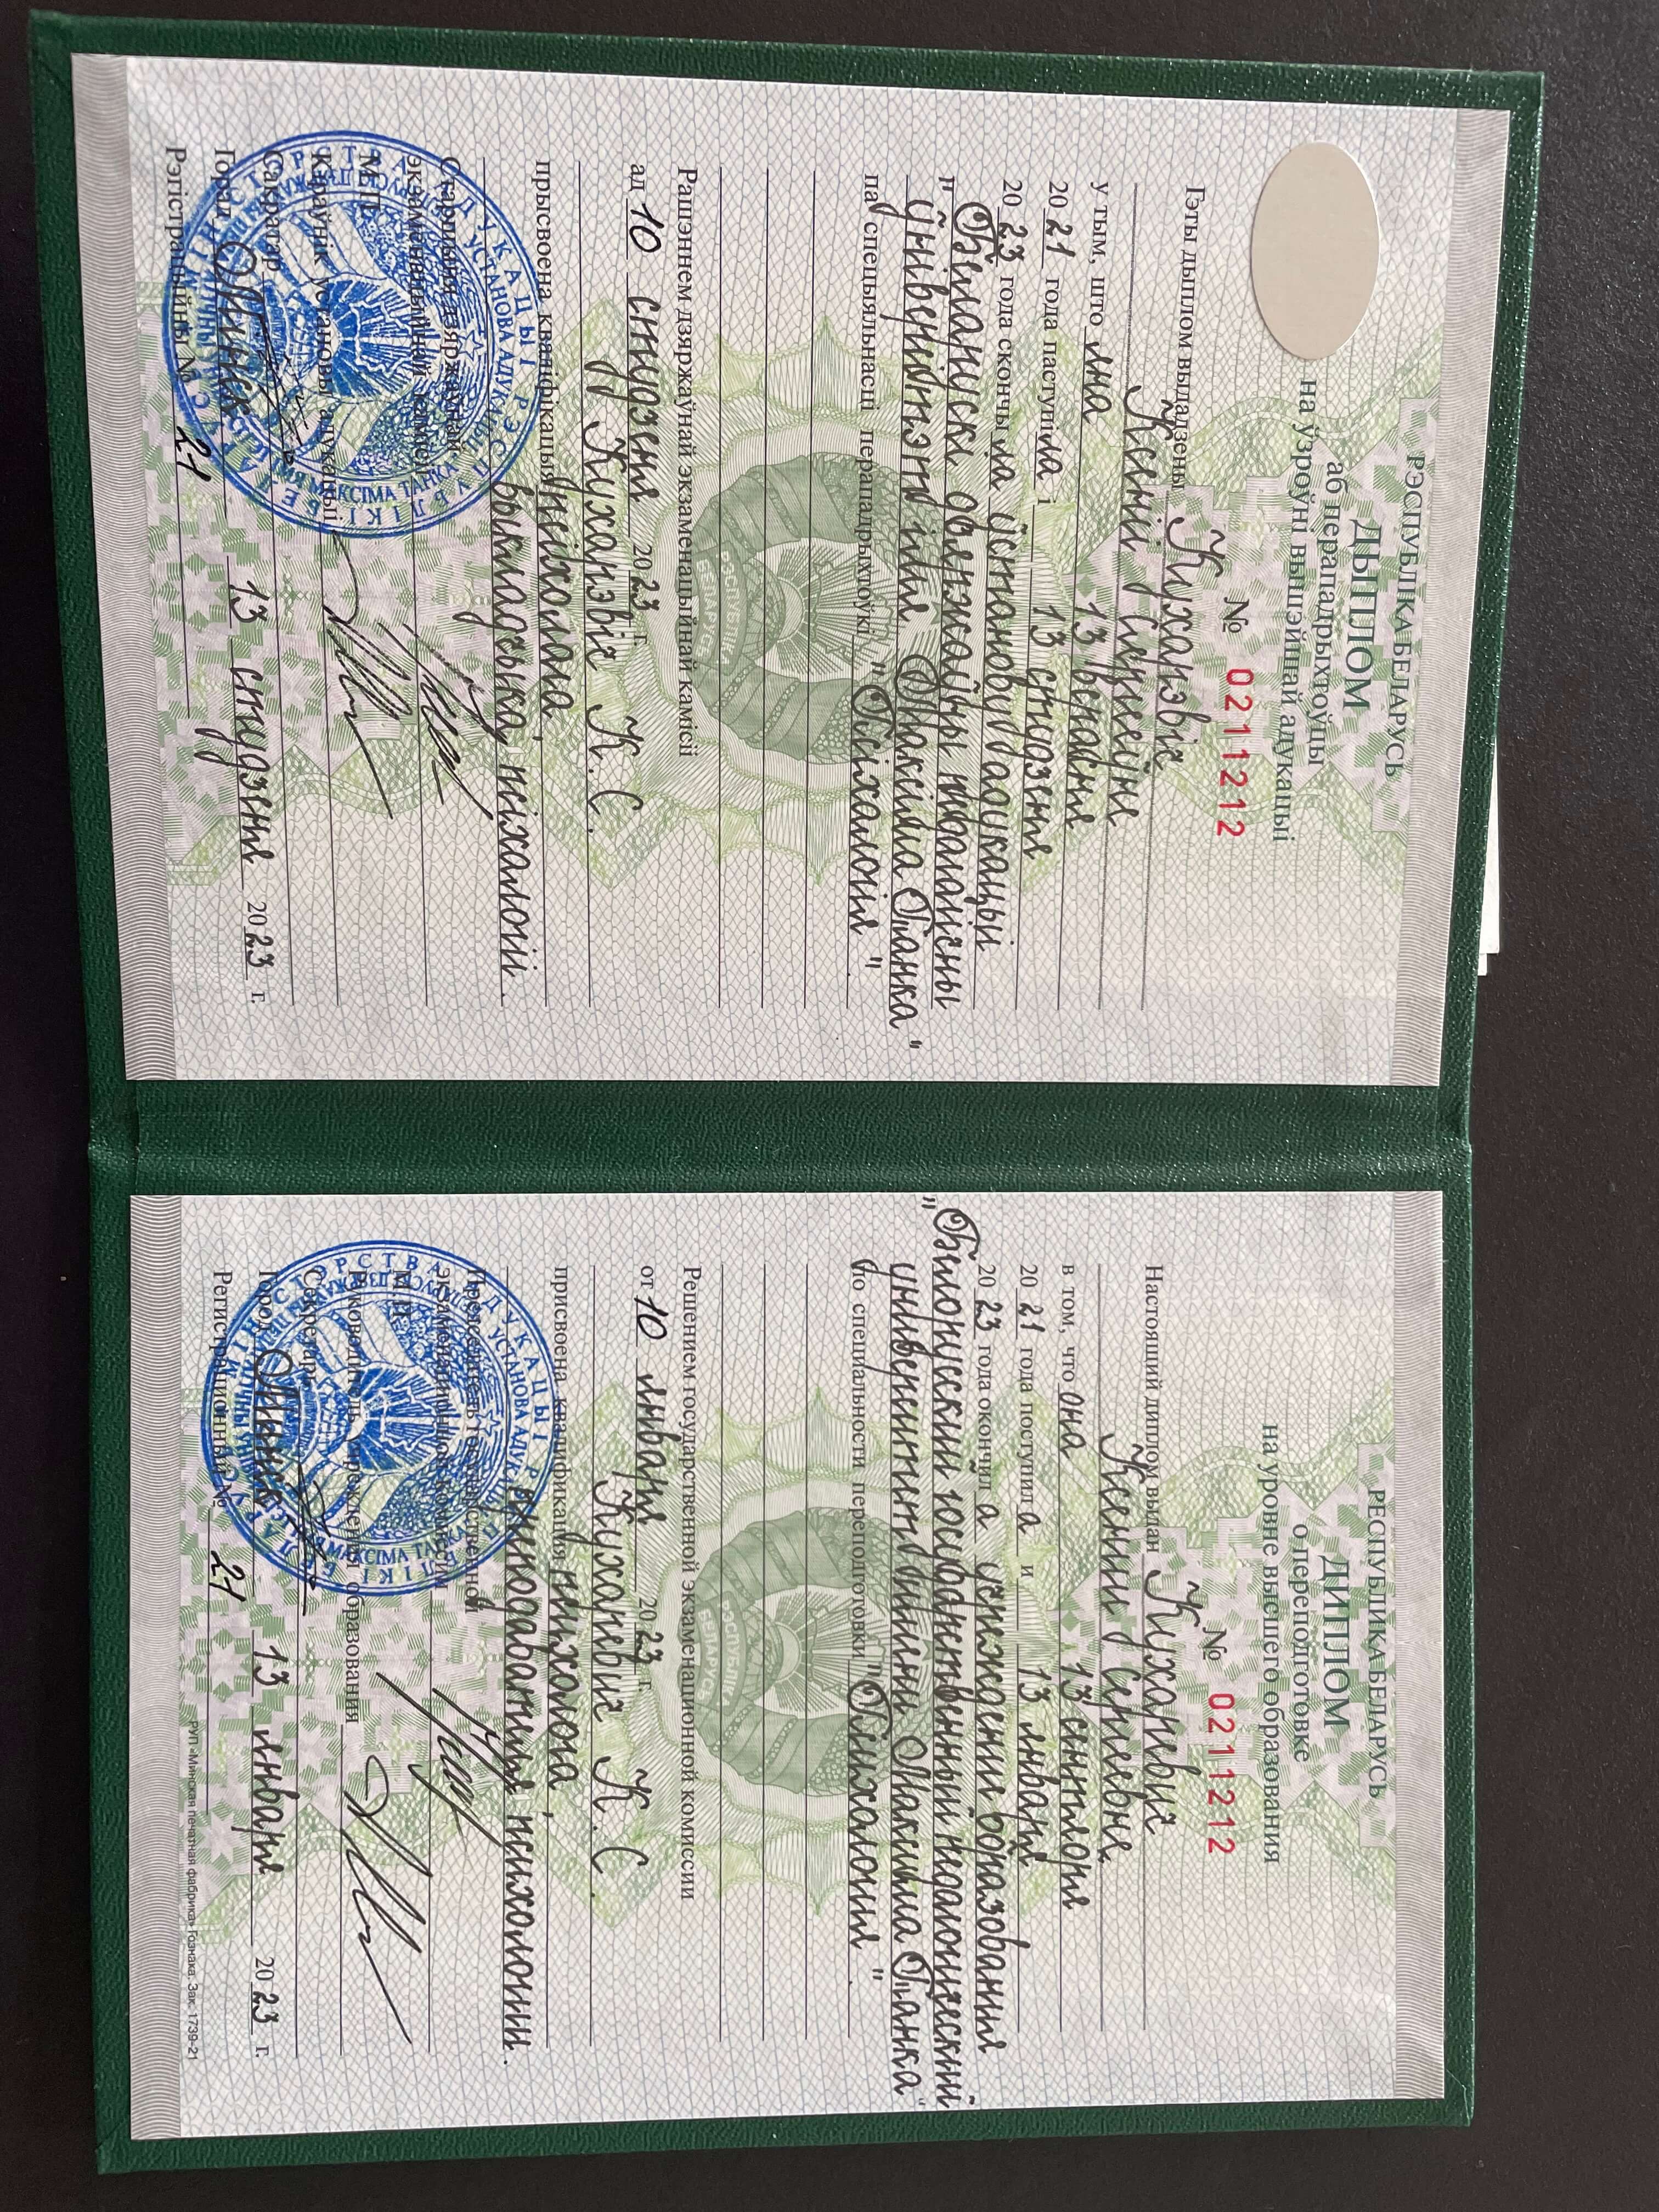 РЭСПУБЛІКА БЕЛАРУСЬ
ДЫПЛОМ
аб перападрыхтоўцы
на ўзроўні вышэйшай адукацыі
№ 0211212
Гэты дыплом выдадзены Куханэвіч
Ксеніі Сяргееўне
у тым, што яна 13 верасня
20 21 года паступіла і 13 студзеня
20 23 года скончыла ўстанову адукацыі
"Беларускі дзяржаўны педагагічны
ўніверсітэт імя Максіма Танка"
па спецыяльнасці перападрыхтоўкі "Псіхалогія"
Рашэннем дзяржаўнай экзаменацыйнай камісіі
ад 10 студзеня 2023 г.
Куханэвіч К.С.
прысвоена кваліфікацыя псіхолага,
выкладчыка псіхалогіі.
Старшыня дзяржаўнай
экзаменацыйнай камісіі
М.П.
Кіраўнік установы адукацыі
Сакратар
Горад Мінск 13 студзеня 2023 г.
Рэгістрацыйны № 21
РЕСПУБЛИКА БЕЛАРУСЬ
ДИПЛОМ
о переподготовке
на уровне высшего образования
№ 0211212
Настоящий диплом выдан Куханевич
Ксении Сергеевне
в том, что она 13 сентября
20 21 года поступила и 13 января
20 23 года окончила учреждение образования
"Белорусский государственный педагогический
университет имени Максима Танка"
по специальности переподготовки "Психология"
Решением государственной экзаменационной комиссии
от 10 января 2023 г.
Куханевич К.С.
присвоена квалификация психолога,
преподавателя психологии.
Председатель государственной
экзаменационной комиссии
М.П.
Руководитель учреждения образования
Секретарь
Город Минск 13 января 2023 г.
Регистрационный № 21
РУП «Минская печатная фабрика» Гознака. Зак. 1739-21